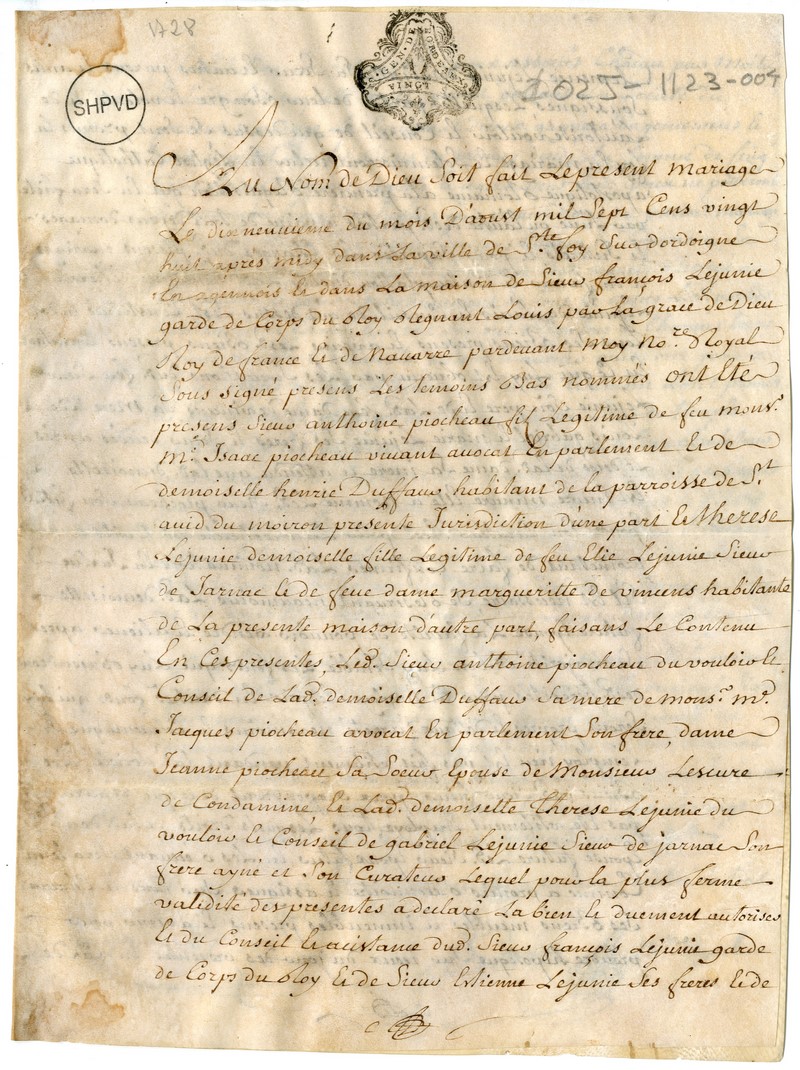 1728
GEN · DE · BORDEAUX
VINGT
SHPVD
1025-1123-004
Au Nom de Dieu Soit fait Le present mariage
Le dixneuvieme du mois D'aoust mil Sept Cens vingt
huit aprés midy dans La ville de S.te foy Sur dordoigne
En agennois & dans La maison de Sieur françois Lejunie
garde de Corps du Roy Regnant Louis par La grace de Dieu
Roy de france & de Navarre pardevant moy No.re Royal
Sous signé presens Les temoins Bas nommés ont Eté
presens Sieur anthoine piocheau fils Legitime de feu mons.r
M.e Isaac piocheau vivant avocat En parlement & de
demoiselle henrie Duffaur habitant de la parroisse de S.t
avid du moiron presente Jurisdiction d'une part & therese
Lejunie demoiselle fille Legitime de feu Elie Lejunie Sieur
de Jarnac & de feue dame margueritte de vincens habitante
de La presente maison d'autre part, faisans Le Contenu
En Ces presentes, Led. Sieur anthoine piocheau du vouloir &
Conseil de Lad. demoiselle Duffaur Sa mere de mons.r M.e
Jacques piocheau avocat En parlement Son frere, dame
Jeanne piocheau Sa Soeur Epouse de Monsieur Lescure
de Condamine, & Lad. demoiselle Therese Lejunie du
vouloir & Conseil de gabriel Lejunie Sieur de jarnac Son
frere ayné et Son Curateur Lequel pour la plus ferme
validité des presentes a declaré La bien & duement autoriser
& du Conseil & acistance dud. Sieur françois Lejunie garde
de Corps du Roy & de Sieur Estienne Lejunie Ses freres & de